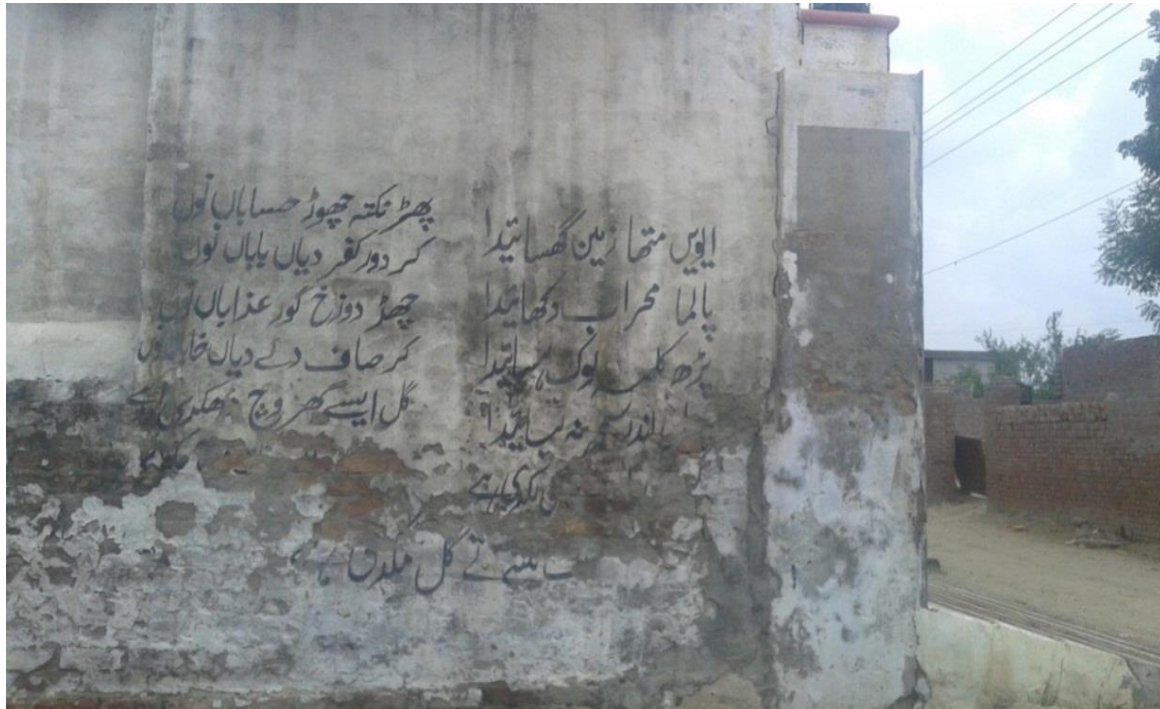 ایویں متھا زمین گھسائیدا
پالما محراب دکھائیدا
پڑھ کلمہ لوک ہسائیدا
اندر نہ لیائیدا
پھڑ نکتہ چھوڑ حساباں نوں
کر دور کفر دیاں باباں نوں
چھڑ دوزخ گور عذاباں نوں
کر صاف دلے دیاں
گل ایسے گھر وچ ڈھکدی اے
نکتے تے گل مکدی ہے